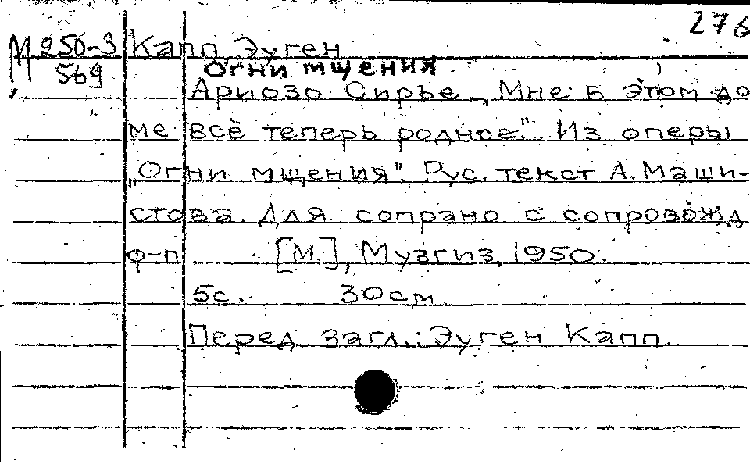 276
М 250-3 Капп Эуген
569 Огни мщения
Ариозо Сирье „Мне в этом до
ме всё теперь родное". Из оперы
„Огни мщения". Рус. текст А. Маши-
стова. Для сопрано с сопровожд
ф-п [М.], Музгиз, 1950.
5с. 30см.
Перед загл.: Эуген Капп.